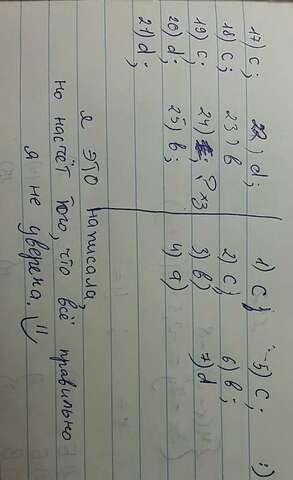 17) c; 22) d; 1) C; 5) C; :)
18) c; 23) b 2) C; 6) b;
19) c; 24) ; ? хз 3) b) 7) d
20) d; 25) b; 4) a)
21) d;
я это написала,
но насчёт того, что всё правильно
я не уверена. =)